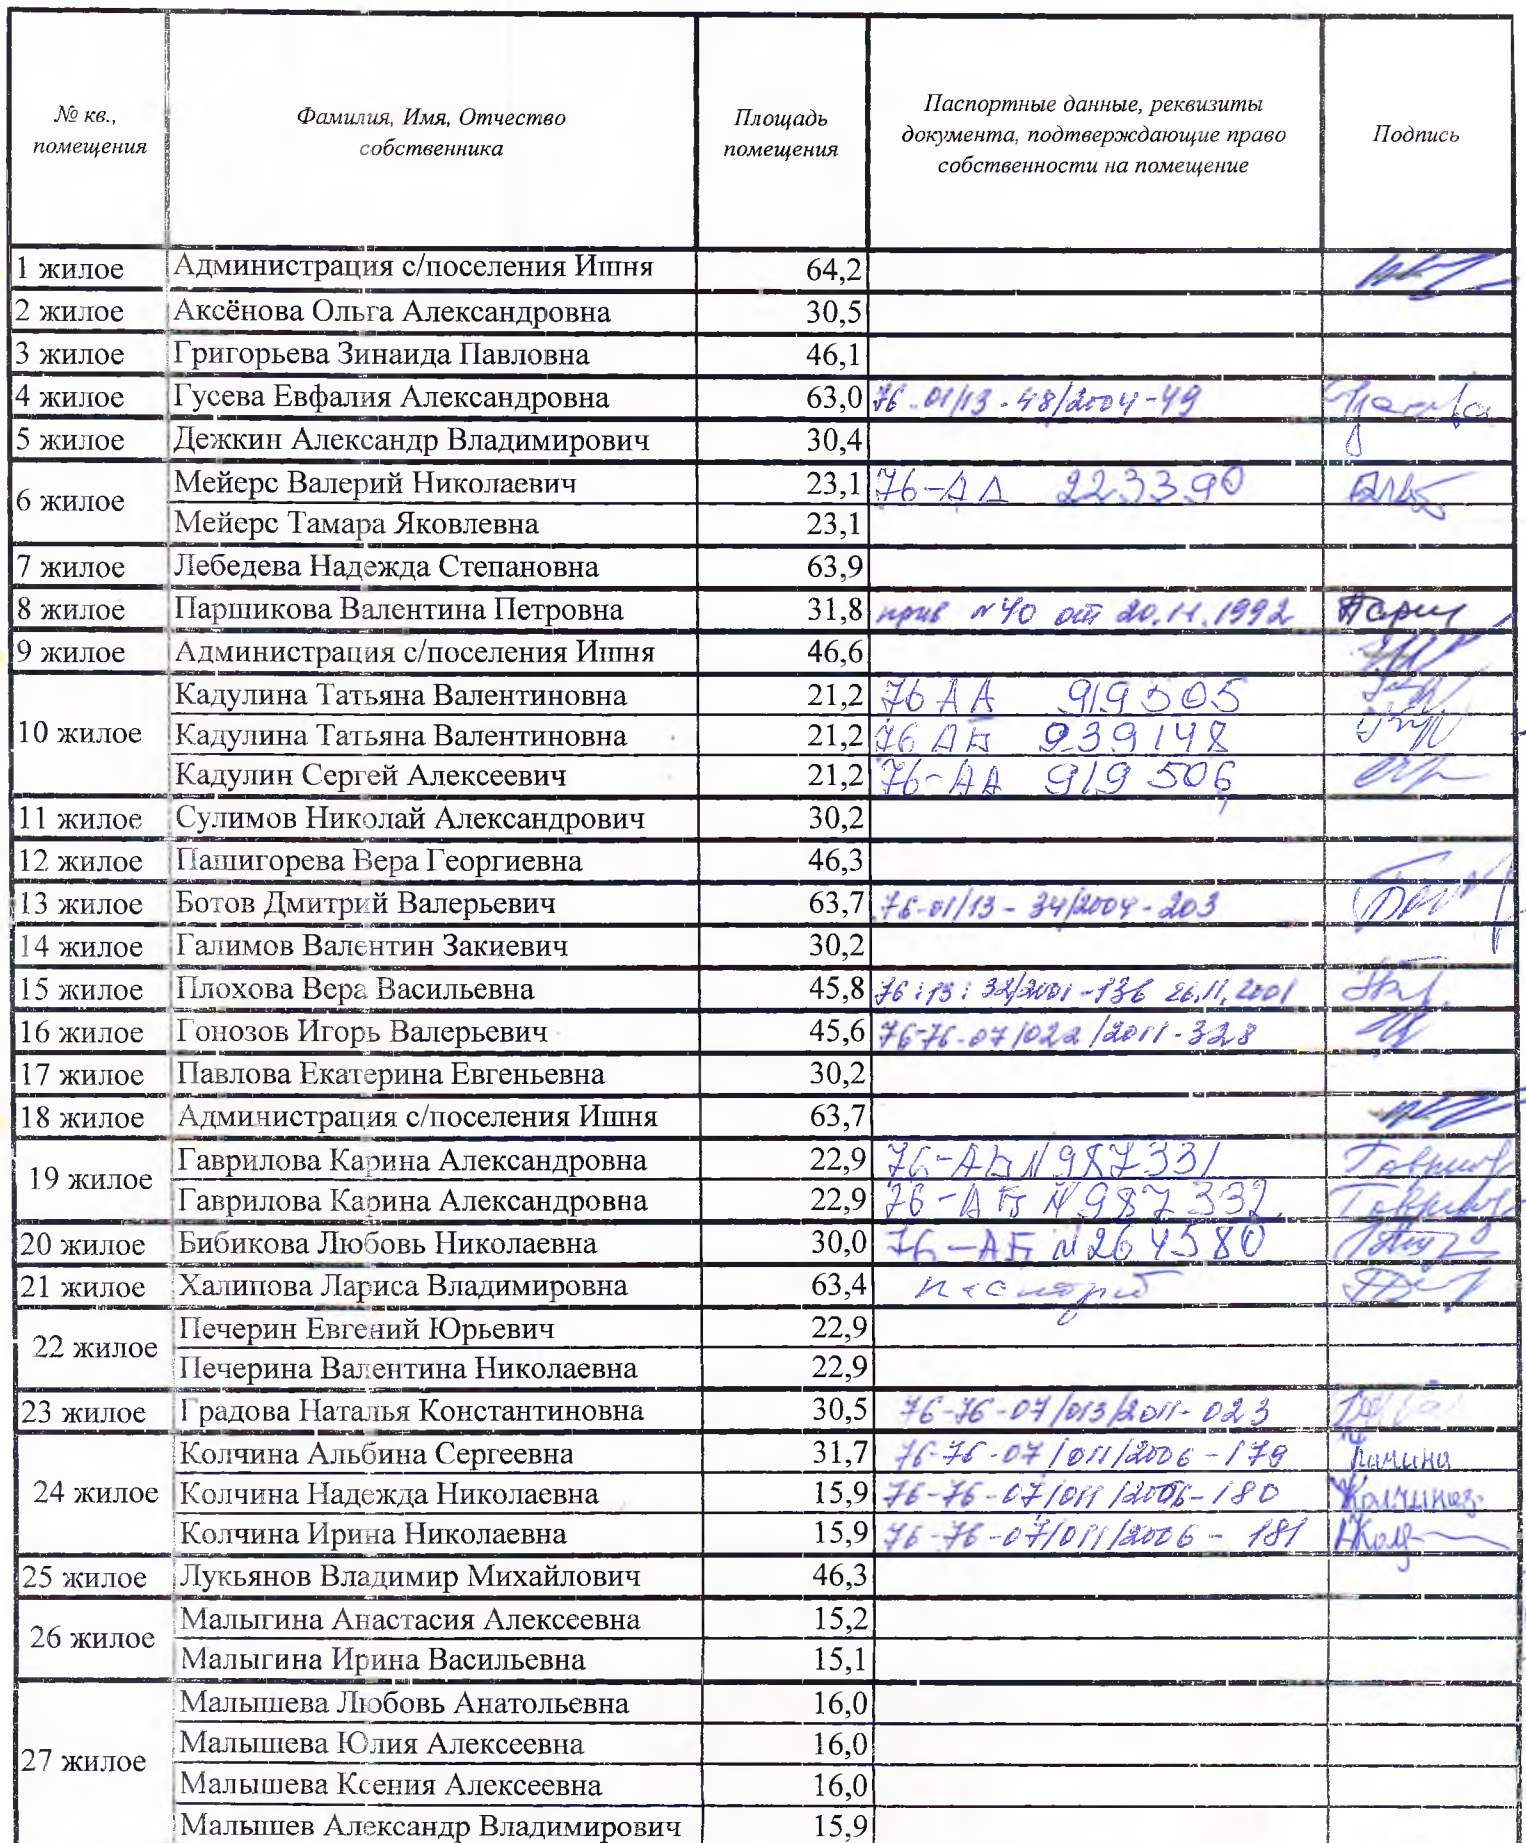 № кв., помещения
Фамилия, Имя, Отчество собственника
Площадь помещения
Паспортные данные, реквизиты документа, подтверждающие право собственности на помещение
Подпись
1 жилое Администрация с/поселения Ишня 64,2
2 жилое Аксёнова Ольга Александровна 30,5
3 жилое Григорьева Зинаида Павловна 46,1
4 жилое Гусева Евфалия Александровна 63,0 76-01/13-48/2004-49
5 жилое Дежкин Александр Владимирович 30,4
6 жилое Мейерс Валерий Николаевич 23,1 76-АА 223390
Мейерс Тамара Яковлевна 23,1
7 жилое Лебедева Надежда Степановна 63,9
8 жилое Паршикова Валентина Петровна 31,8 прив №40 от 20.11.1992
9 жилое Администрация с/поселения Ишня 46,6
10 жилое Кадулина Татьяна Валентиновна 21,2 76 АА 919505
Кадулина Татьяна Валентиновна 21,2 76 АБ 939148
Кадулин Сергей Алексеевич 21,2 76-АА 919506
11 жилое Сулимов Николай Александрович 30,2
12 жилое Пашигорева Вера Георгиевна 46,3
13 жилое Ботов Дмитрий Валерьевич 63,7 76-01/13-34/2004-203
14 жилое Галимов Валентин Закиевич 30,2
15 жилое Плохова Вера Васильевна 45,8 76:13:32/2001-136 26.11.2001
16 жилое Гонозов Игорь Валерьевич 45,6 76-76-07/022/2011-328
17 жилое Павлова Екатерина Евгеньевна 30,2
18 жилое Администрация с/поселения Ишня 63,7
19 жилое Гаврилова Карина Александровна 22,9 76-АБ №987331
Гаврилова Карина Александровна 22,9 76-АБ №987332
20 жилое Бибикова Любовь Николаевна 30,0 76-АБ №264580
21 жилое Халипова Лариса Владимировна 63,4 паспорт
22 жилое Печерин Евгений Юрьевич 22,9
Печерина Валентина Николаевна 22,9
23 жилое Градова Наталья Константиновна 30,5 76-76-07/013/2011-023
24 жилое Колчина Альбина Сергеевна 31,7 76-76-07/011/2006-179
Колчина Надежда Николаевна 15,9 76-76-07/011/2006-180
Колчина Ирина Николаевна 15,9 76-76-07/011/2006-181
25 жилое Лукьянов Владимир Михайлович 46,3
26 жилое Малыгина Анастасия Алексеевна 15,2
Малыгина Ирина Васильевна 15,1
27 жилое Малышева Любовь Анатольевна 16,0
Малышева Юлия Алексеевна 16,0
Малышева Ксения Алексеевна 16,0
Малышев Александр Владимирович 15,9